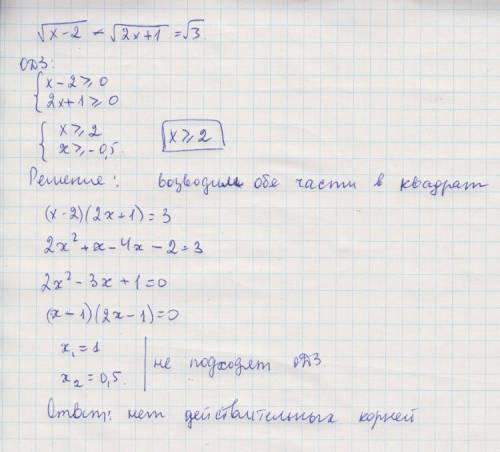 √x-2 - √2x+1 = √3
ОДЗ:
{ x-2 ≥ 0
{ 2x+1 ≥ 0
{ x ≥ 2
{ x ≥ -0,5. x ≥ 2
Решение: возводим обе части в квадрат
(x-2)(2x+1) = 3
2x² + x - 4x - 2 = 3
2x² - 3x + 1 = 0
(x-1)(2x-1) = 0
x₁ = 1
x₂ = 0,5. | не подходят ОДЗ
Ответ: нет действительных корней